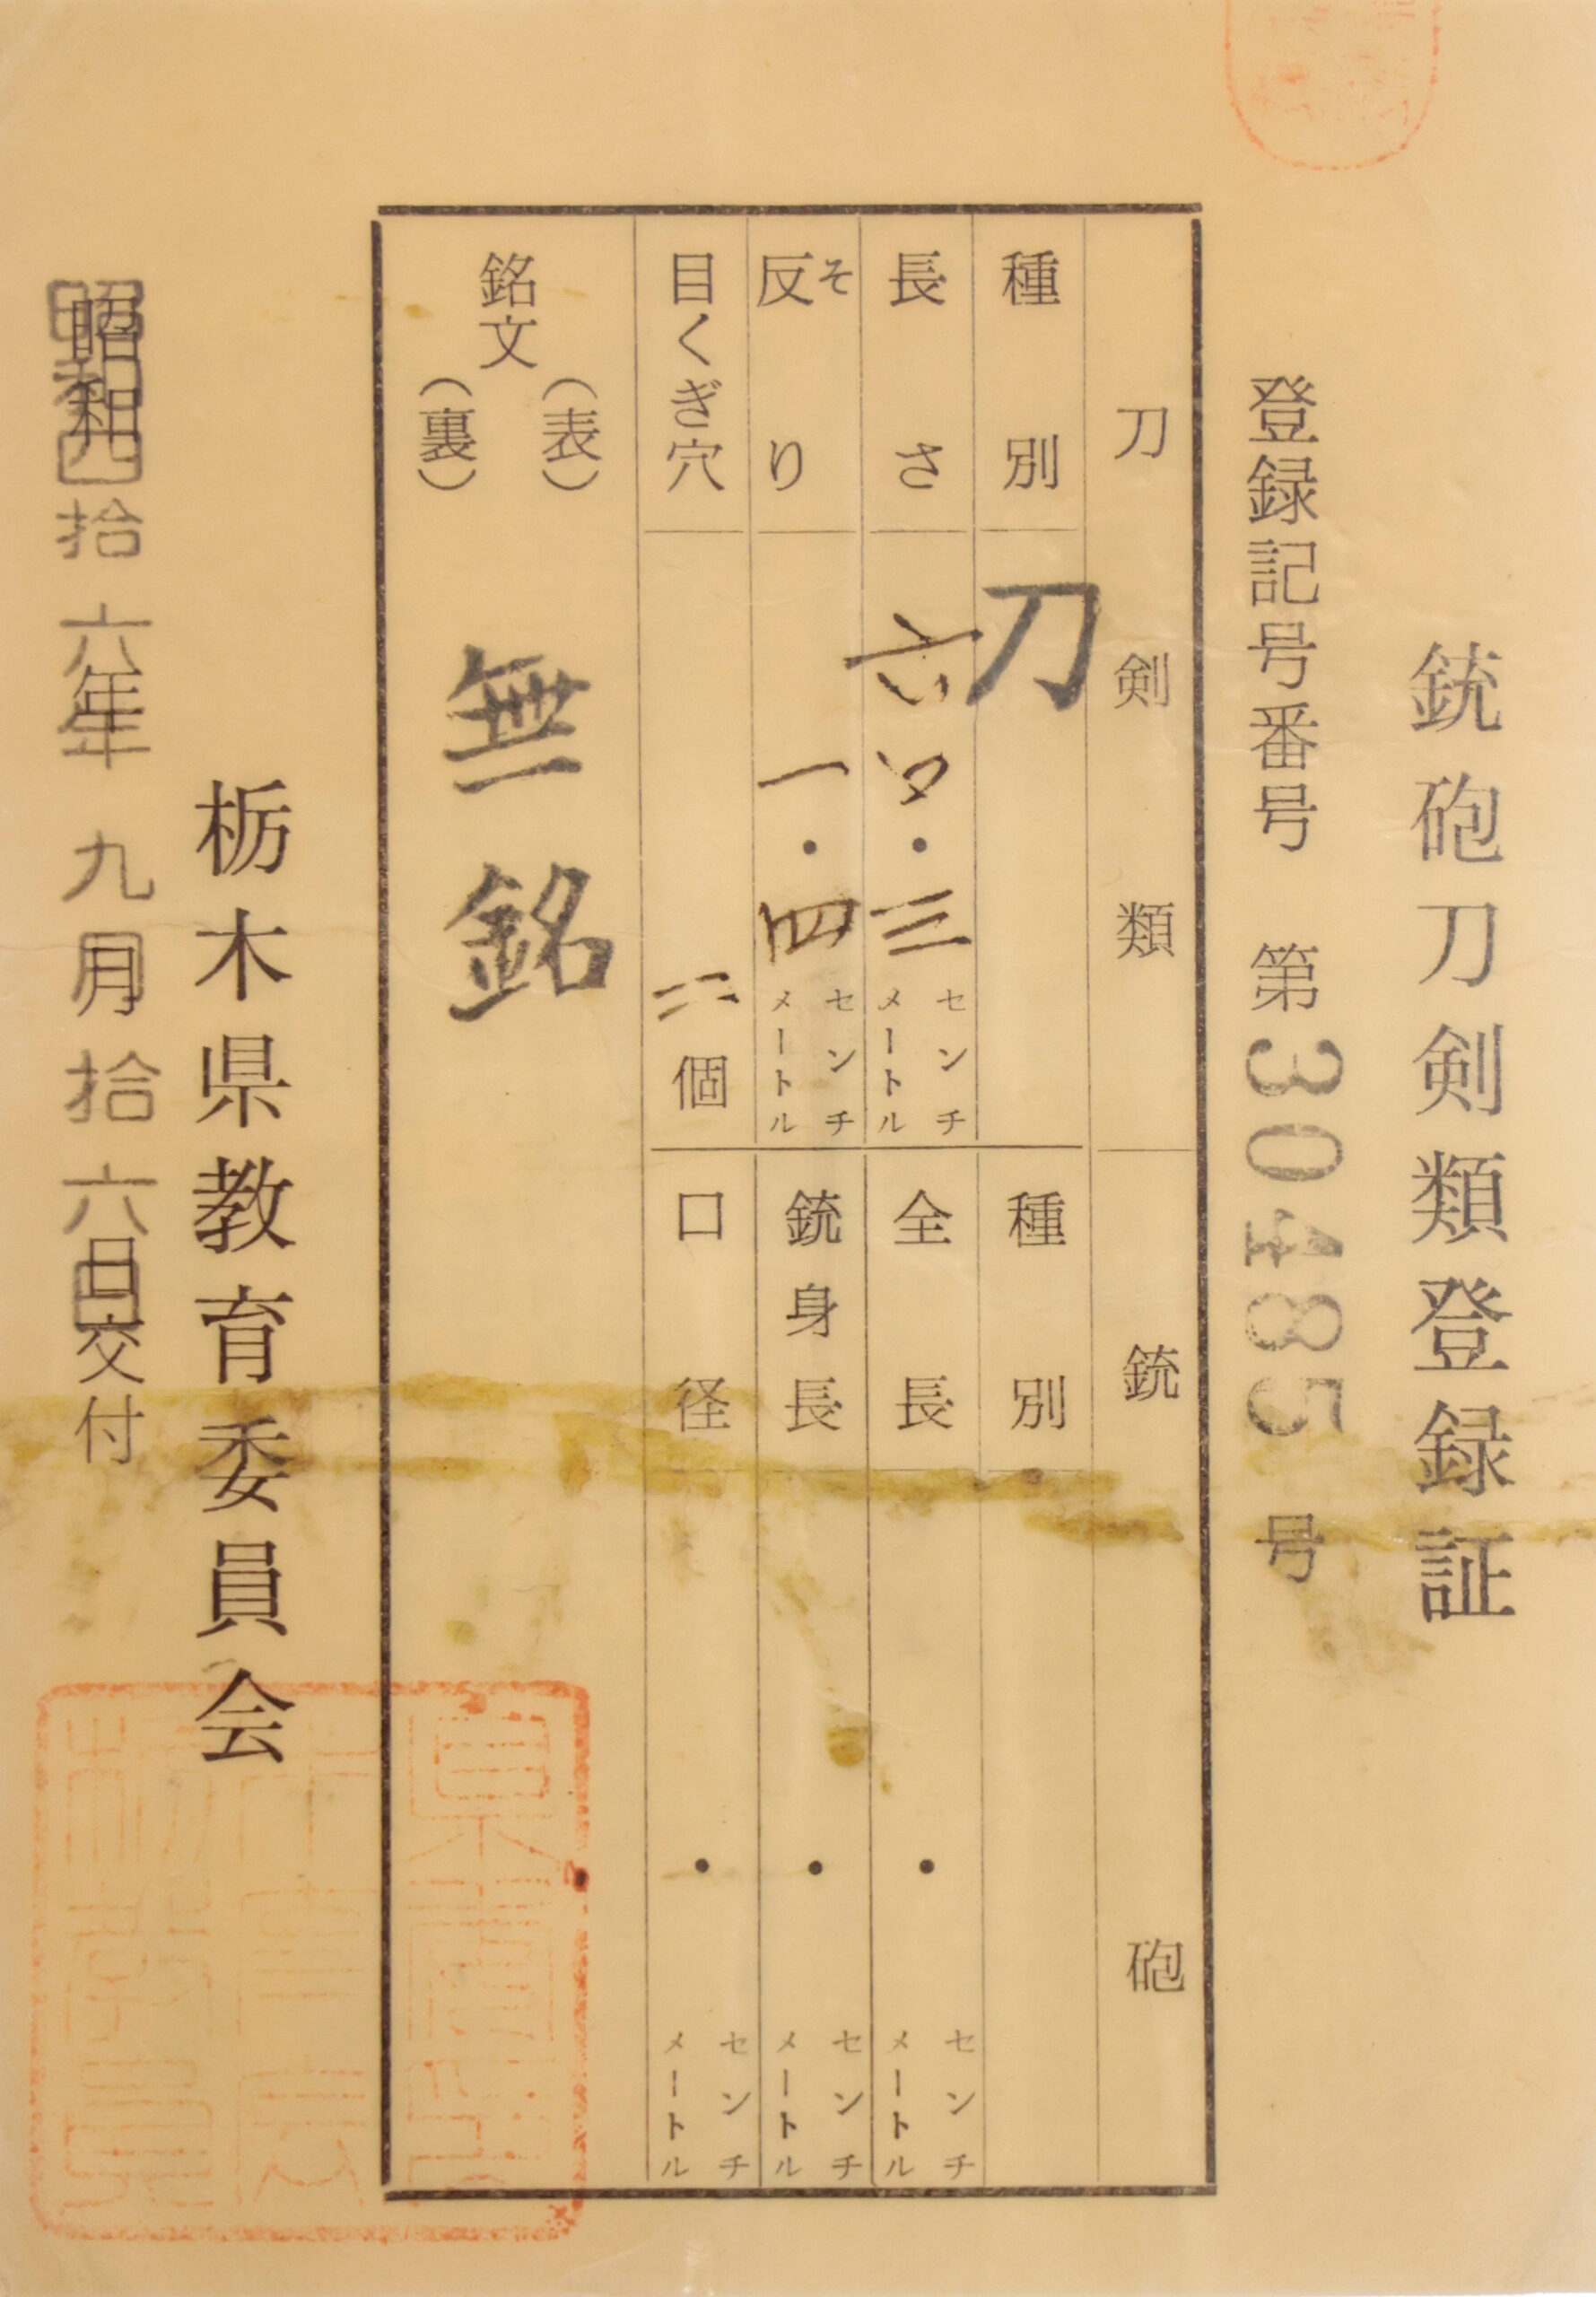 銃砲刀剣類登録証
登録記号番号 第30485号
刀剣類
種別 刀
長さ 六四・三センチメートル
反り そ 一・四センチメートル
目くぎ穴 二個
銘文 (表) (裏) 無銘
銃砲
種別
全長 ・ センチメートル
銃身長 ・ センチメートル
口径 ・ センチメートル
栃木県教育委員会
昭和四拾六年九月拾六日交付